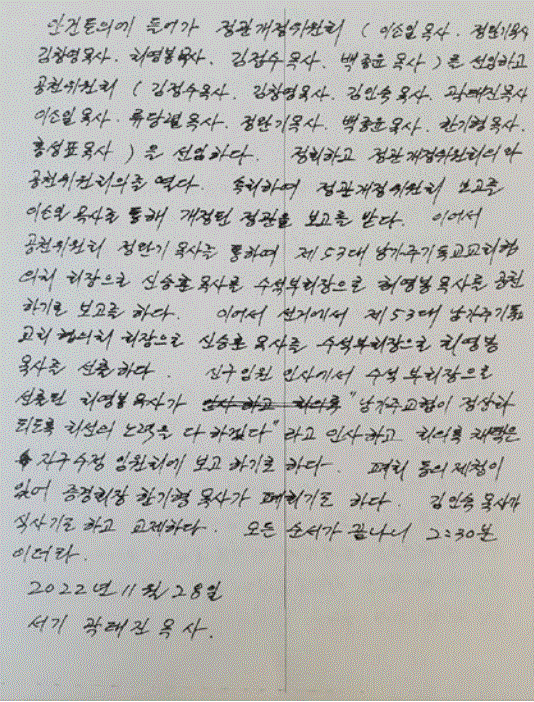 안건토의에 들어가 정관개정위원회 ( 이손일 목사. 정완기목사
김창영목사. 최영봉목사. 김정수목사. 백종운 목사 ) 를 선임하고
공천위원회 ( 김정수목사. 김창영목사. 김인숙 목사. 곽태진목사
이손일목사. 류당열목사. 정완기목사. 백종운목사. 한기형목사.
홍성표목사 ) 을 선임하다. 정회하고 정관개정위원회의와
공천위원회의를 열다. 속회하여 정관개정위원회 보고를
이손일 목사를 통해 개정된 정관을 보고를 받다. 이어서
공천위원회 정완기 목사를 통하여 제 53대 남가주기독교교회협
의회 회장으로 신승훈 목사를 수석부회장으로 최영봉 목사를 공천
하기로 보고를 하다. 이어서 선거에서 제 53대 남가주기독
교회 협의회 회장으로 신승훈 목사를 수석부회장으로 최영봉
목사를 선출하다. 신구임원 인사에서 수석 부회장으로
선출된 최영봉목사가 인사 하고 회의록 "남가주교협이 정상화
되도록 최선의 노력을 다 하겠다" 라고 인사하고 회의록 채택은
자구수정 임원회에 보고 하기로 하다. 폐회 동의제청이
있어 증경회장 한기형 목사가 폐회기도 하다. 김인숙 목사가
식사기도하고 교제하다. 모든 순서가 끝나니 2:30분
이더라.
2022년 11월 28일
서기 곽태진 목사.